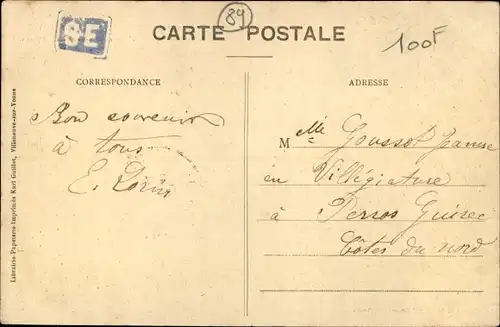 89
SE
CARTE POSTALE
100F
CORRESPONDANCE
ADRESSE
Bon souvenir
à tous
E.
Mlle Goussot Jeanne
en Villégiature
à Perros Guirec
Côtes du nord
Librairie-Papeterie-Imprimerie Karl Guillot, Villeneuve-sur-Yonne